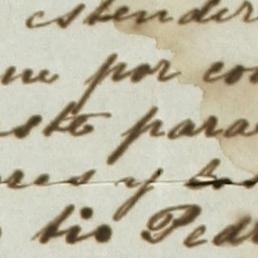 estender
ue por co
este para
ores y los
tio Pedr